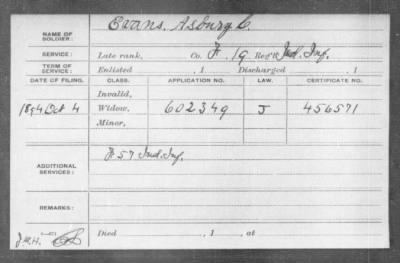 NAME OF SOLDIER: Evans, Asbury C.
SERVICE: Late rank, Co. F, 19 Reg't Ind. Inf.
TERM OF SERVICE: Enlisted , 1 Discharged , 1
DATE OF FILING. CLASS. APPLICATION NO. LAW. CERTIFICATE NO.
Invalid,
1894 Oct 4 Widow, 602349 J 456571
Minor,
ADDITIONAL SERVICES: F 57 Ind. Inf.
REMARKS:
Died , 1 , at